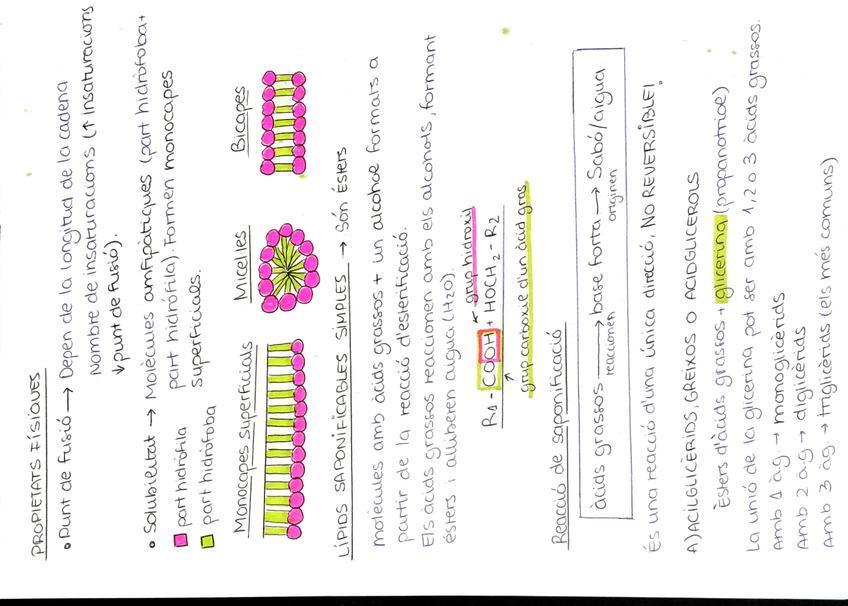 PROPIETATS FÍSIQUES
• Punt de fusió → Depèn de la longitud de la cadena
Nombre de insaturacions (↑ Insaturacions
↓ punt de fusió).
• Solubilitat → Molècules amfipàtiques (part hidròfoba +
part hidròfila). Formen monocapes
superficials.
part hidròfila
part hidròfoba
Monocapes superficials
Micelles
Bicapes
LÍPIDS SAPONIFICABLES SIMPLES → Són Èsters
molècules amb àcids grassos + un alcohol formats a
partir de la reacció d'esterificació.
Els àcids grassos reaccionen amb els alcohols, formant
èsters i alliberen aigua (H2O).
grup hidroxil
R1 - COOH + HOCH2 - R2
grup carboxil d'un àcid gras
Reacció de saponificació
àcids grassos → base forta → Sabó/aigua
reaccionen originen
És una reacció d'una única direcció, NO REVERSIBLE!
A) ACILGLICÈRIDS, GREIXOS O ACIDGLICEROLS
Èsters d'àcids grassos + glicerina (propanotriol)
La unió de la glicerina pot ser amb 1, 2 o 3 àcids grassos.
Amb 1 à.g. → monoglicèrids
Amb 2 à.g → diglicèrids
Amb 3 àg. → triglicèrids (els més comuns)